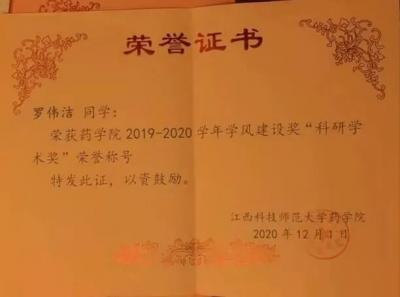 荣誉证书
罗伟洁 同学：
荣获药学院 2019-2020 学年学风建设奖“科研学
术奖”荣誉称号
特发此证，以资鼓励。
江西科技师范大学药学院
2020 年 12 月 1 日